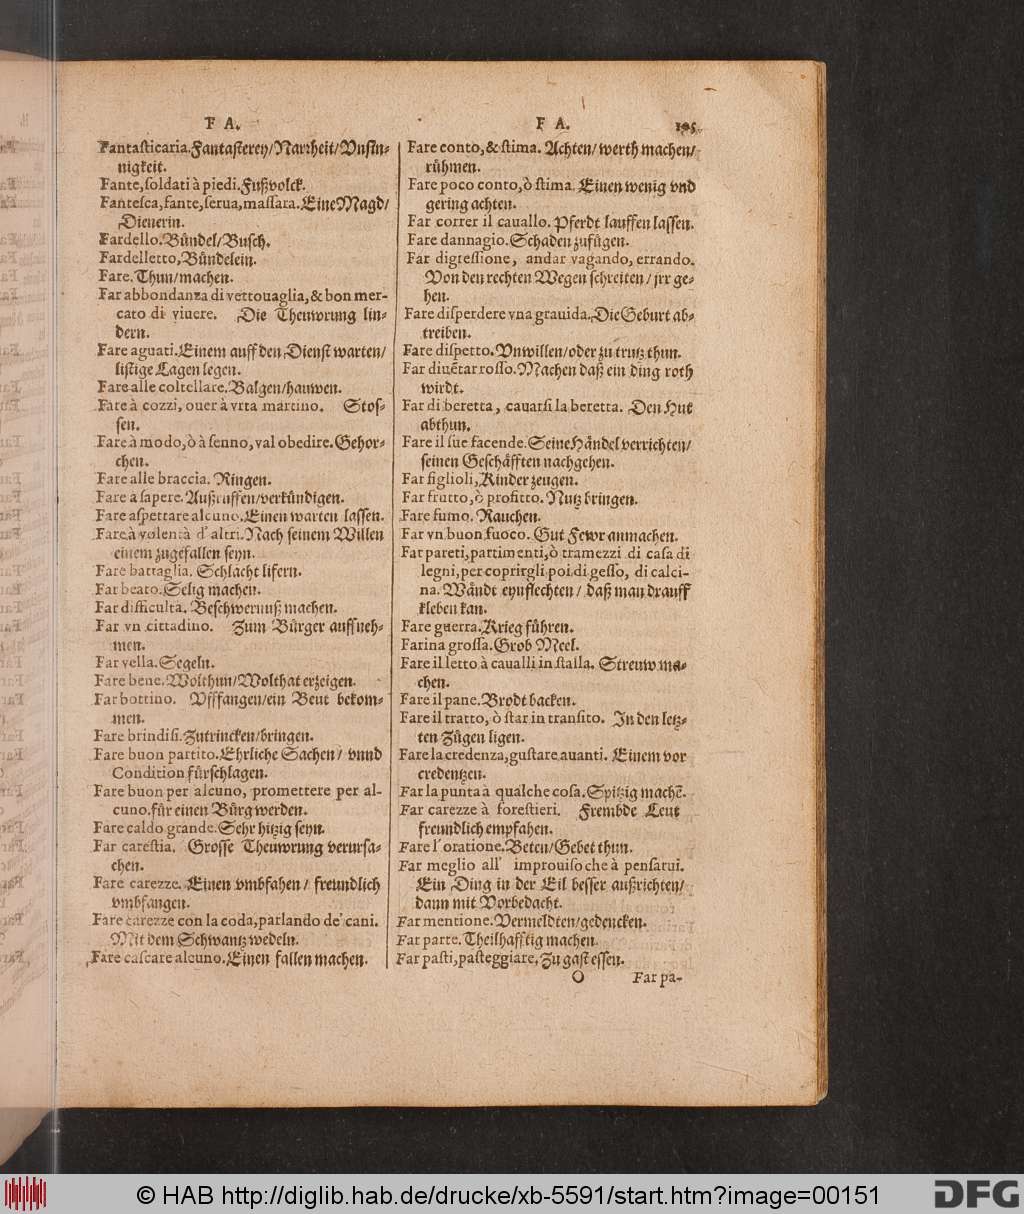 F A.
Fantasticaria. Fantasterey/Narrheit/Vnsin-
nigkeit.
Fante, soldati à piedi. Fußvolck.
Fantesca, fante, serua, massara. Eine Magd/
Dienerin.
Fardello. Bündel/Busch.
Fardelletto, Bündelein.
Fare. Thun/machen.
Far abbondanza di vettouaglia, & bon mer-
cato di viuere. Die Theuwrung lin-
dern.
Fare aguati. Einem auff den Dienst warten/
listige Lagen legen.
Fare alle coltellare. Balgen/hauwen.
Fare à cozzi, ouer à vrta martino. Stos-
sen.
Fare à modo, ò à senno, val obedire. Gehor-
chen.
Fare alle braccia. Ringen.
Fare a sapere. Außruffen/verkündigen.
Fare aspettare alcuno. Einen warten lassen.
Fare à volentà d'altri. Nach seinem Willen
einem zugefallen seyn.
Fare battaglia. Schlacht lifern.
Far beato. Selig machen.
Far difficulta. Beschwernuß machen.
Far vn cittadino. Zum Bürger auffneh-
men.
Far vella. Segeln.
Fare bene. Wolthun/Wolthat erzeigen.
Far bottino. Vfffangen/ein Beut bekom-
men.
Fare brindisi. Zutrincken/bringen.
Fare buon partito. Ehrliche Sachen/ vnnd
Condition fürschlagen.
Fare buon per alcuno, promettere per al-
cuno. für einen Bürg werden.
Fare caldo grande. Sehr hitzig seyn.
Far carestia. Grosse Theuwrung verursa-
chen.
Fare carezze. Einen vmbfahen/ freundlich
vmbfangen.
Fare carezze con la coda, parlando de' cani.
Mit dem Schwantz wedeln.
Fare cascare alcuno. Einen fallen machen.
F A. 105
Fare conto, & stima. Achten/ werth machen/
rühmen.
Fare poco conto, ò stima. Einen wenig vnd
gering achten.
Far correr il cauallo. Pferdt lauffen lassen.
Fare dannagio. Schaden zufügen.
Far digressione, andar vagando, errando.
Von den rechten Wegen schreiten/ jrr ge-
hen.
Fare disperdere vna grauida. Die Geburt ab-
treiben.
Fare dispetto. Vnwillen/oder zu trutz thun.
Far diuẽtar rosso. Machen daß ein ding roth
wirdt.
Far di beretta, cauarsi la beretta. Den Hut
abthun.
Fare il sue facende. Seine Händel verrichten/
seinen Geschäfften nachgehen.
Far figlioli, Kinder zeugen.
Far frutto, ò profitto. Nutz bringen.
Fare fumo. Rauchen.
Far vn buon fuoco. Gut Fewr anmachen.
Far pareti, partimenti, ò tramezzi di casa di
legni, per coprirgli poi di gesso, di calci-
na. Wändt eynflechten/ daß man drauff
kleben kan.
Fare guerra. Krieg führen.
Farina grossa. Grob Meel.
Fare il letto à caualli in stalla. Streuw ma-
chen.
Fare il pane. Brodt backen.
Fare il tratto, ò star in transito. In den letz-
ten Zügen ligen.
Fare la credenza, gustare auanti. Einem vor
credentzen.
Far la punta à qualche cosa. Spitzig machẽ.
Far carezze à forestieri. Frembde Leut
freundlich empfahen.
Fare l'oratione. Beten/Gebet thun.
Far meglio all' improuiso che à pensarui.
Ein Ding in der Eil besser außrichten/
dann mit Vorbedacht.
Far mentione. Vermeldten/gedencken.
Far parte. Theilhafftig machen.
Far pasti, pasteggiare, Zu gast essen.
O Far pa-
© HAB http://diglib.hab.de/drucke/xb-5591/start.htm?image=00151
DFG